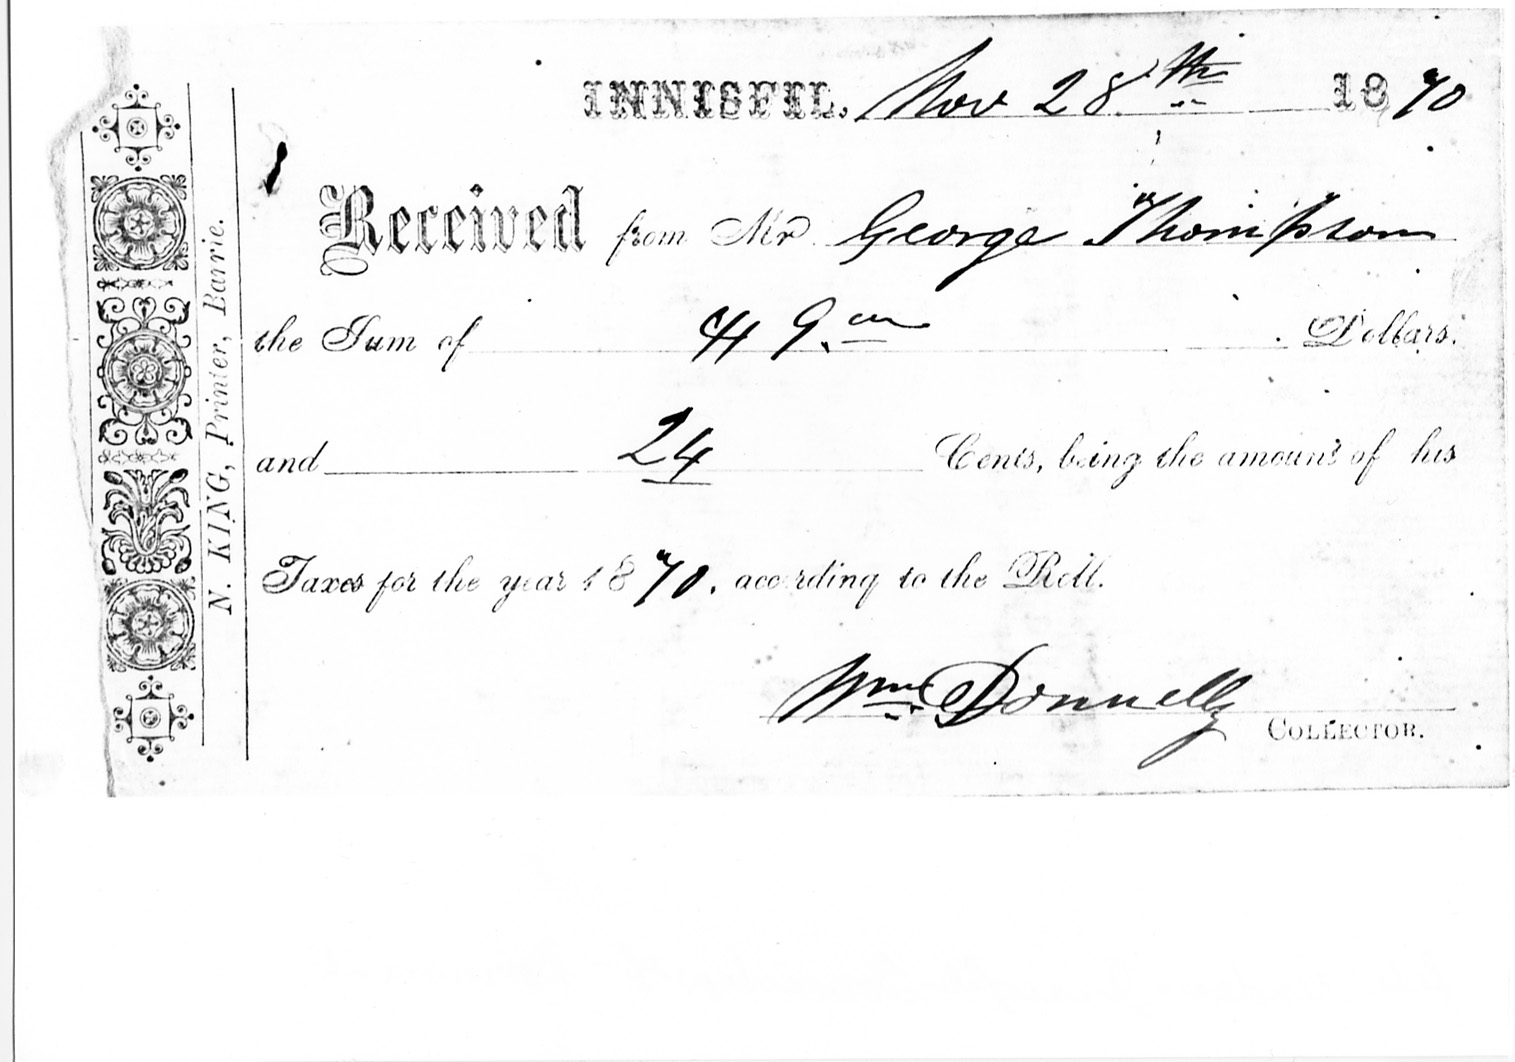 INNISFIL, Nov 28th 1870
Received from Mr George Thompson
the Sum of 49 Dollars.
and 24 Cents, being the amount of his
Taxes for the year 1870, according to the Roll.
Wm Donnelly
COLLECTOR.
N. KING, Printer, Barrie.